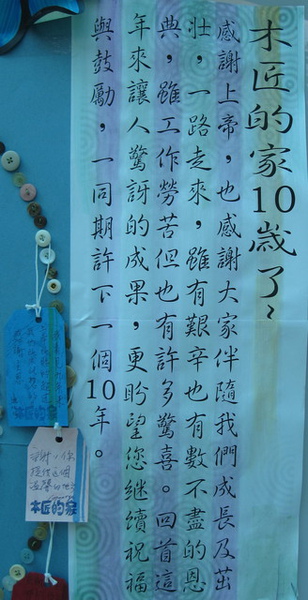 木匠的家10歲了~
感謝上帝，也感謝大家伴隨我們成長及茁
壯，一路走來，雖有艱辛也有數不盡的恩
典，雖工作勞苦但也有許多驚喜。回首這
年來讓人驚訝的成果，更盼望您繼續祝福
與鼓勵，一同期許下一個10年。
木匠的家